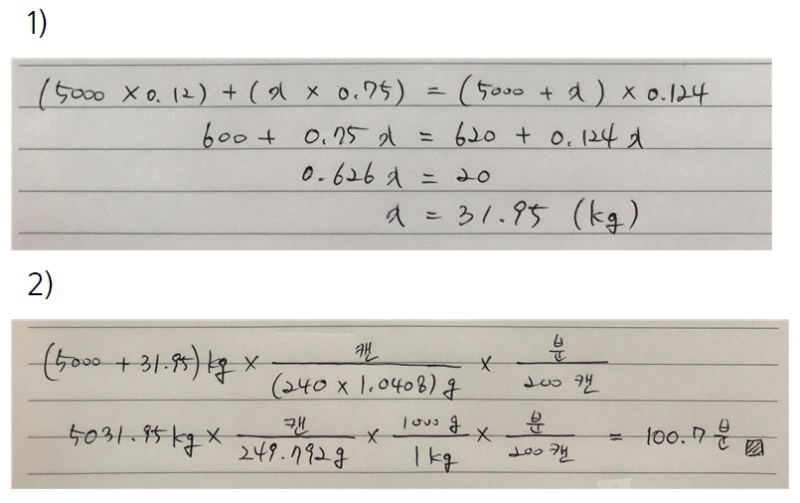 1)
(5000 × 0.12) + (x × 0.75) = (5000 + x) × 0.124
600 + 0.75x = 620 + 0.124x
0.626x = 20
x = 31.95 (kg)
2)
(5000 + 31.95)kg × 캔/(240 × 1.0408)g × 분/200캔
5031.95kg × 캔/249.792g × 1000g/1kg × 분/200캔 = 100.7분